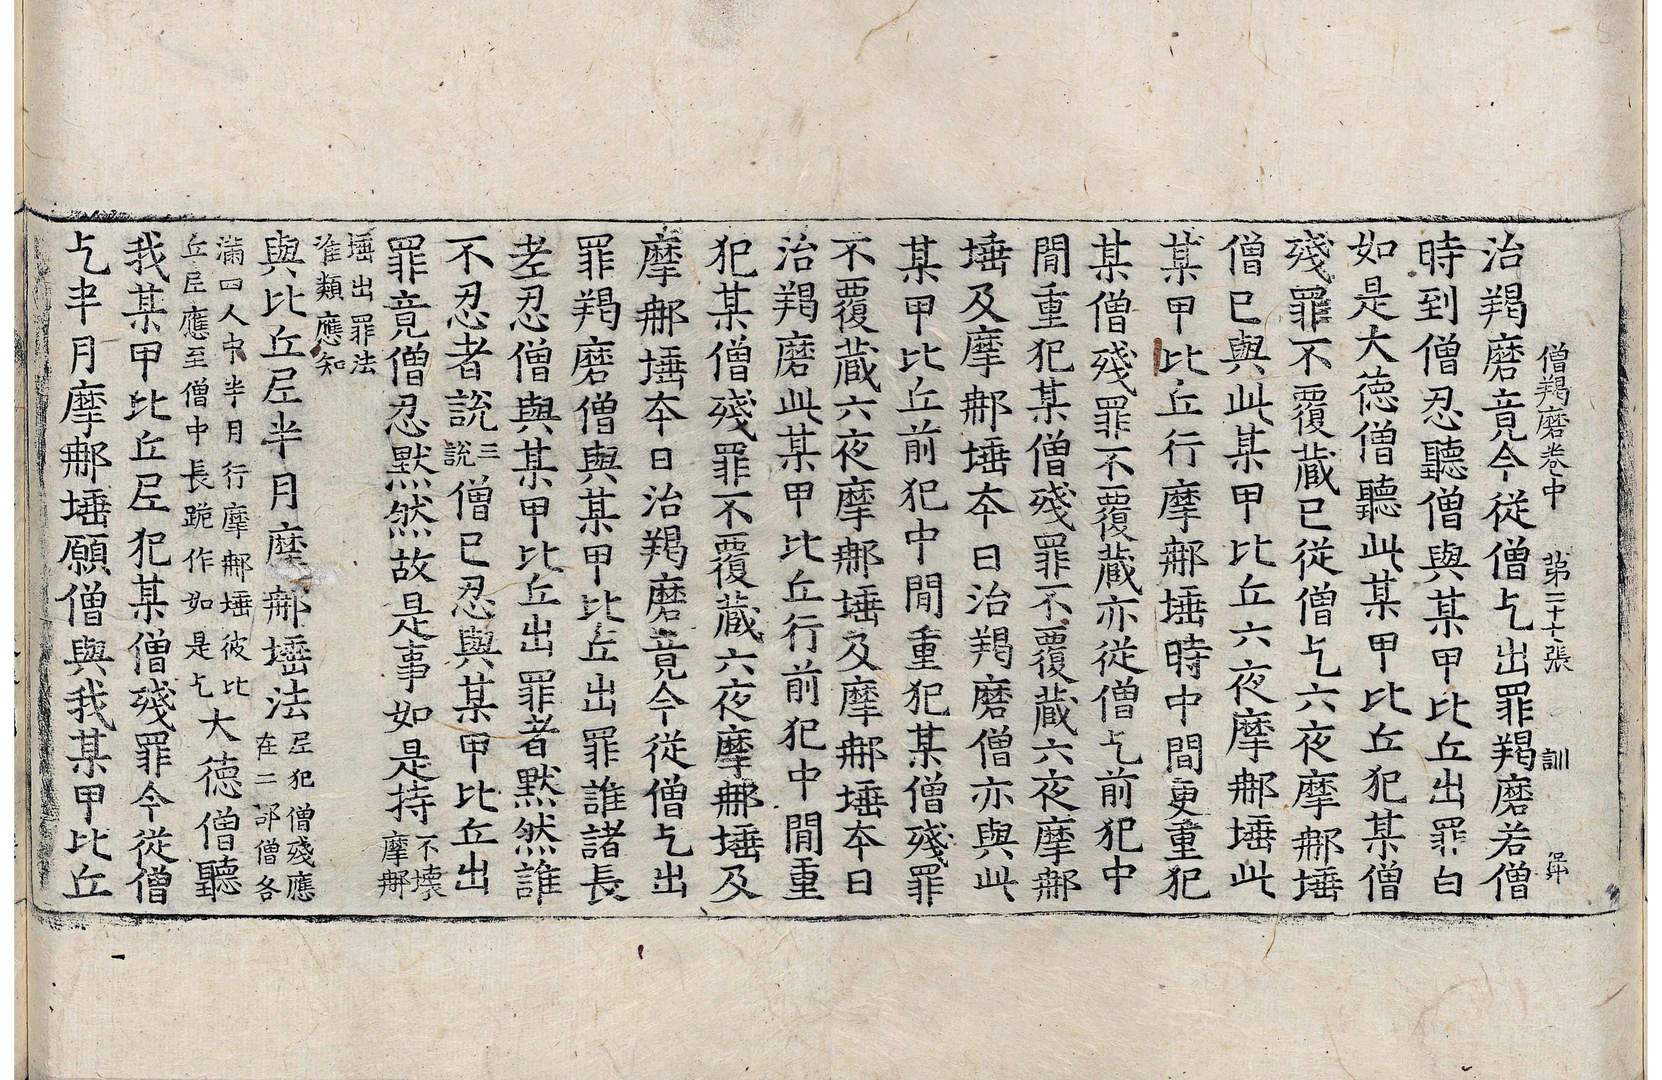 僧羯磨卷中 第二十張 訓
治羯磨竟今從僧乞出罪羯磨若僧
時到僧忍聽僧與某甲比丘出罪白
如是大德僧聽此某甲比丘犯某僧
殘罪不覆藏已從僧乞六夜摩𨚗埵
僧已與此某甲比丘六夜摩𨚗埵此
某甲比丘行摩𨚗埵時中間更重犯
某僧殘罪不覆藏亦從僧乞前犯中
閒重犯某僧殘罪不覆藏六夜摩𨚗
埵及摩𨚗埵夲日治羯磨僧亦與此
某甲比丘前犯中閒重犯某僧殘罪
不覆藏六夜摩𨚗埵及摩𨚗埵夲日
治羯磨此某甲比丘行前犯中閒重
犯某僧殘罪不覆藏六夜摩𨚗埵及
摩𨚗埵夲日治羯磨竟今從僧乞出
罪羯磨僧與某甲比丘出罪誰諸長
老忍僧與某甲比丘出罪者默然誰
不忍者說三說僧已忍與某甲比丘出
罪竟僧忍默然故是事如是持不壞摩𨚗
埵出罪法准類應知
與比丘尼半月摩𨚗埵法尼犯僧殘應在二部僧各
滿四人中半月行摩𨚗埵彼比丘尼應至僧中長跪作如是乞大德僧聽
我某甲比丘尼犯某僧殘罪今從僧
乞半月摩𨚗埵願僧與我某甲比丘